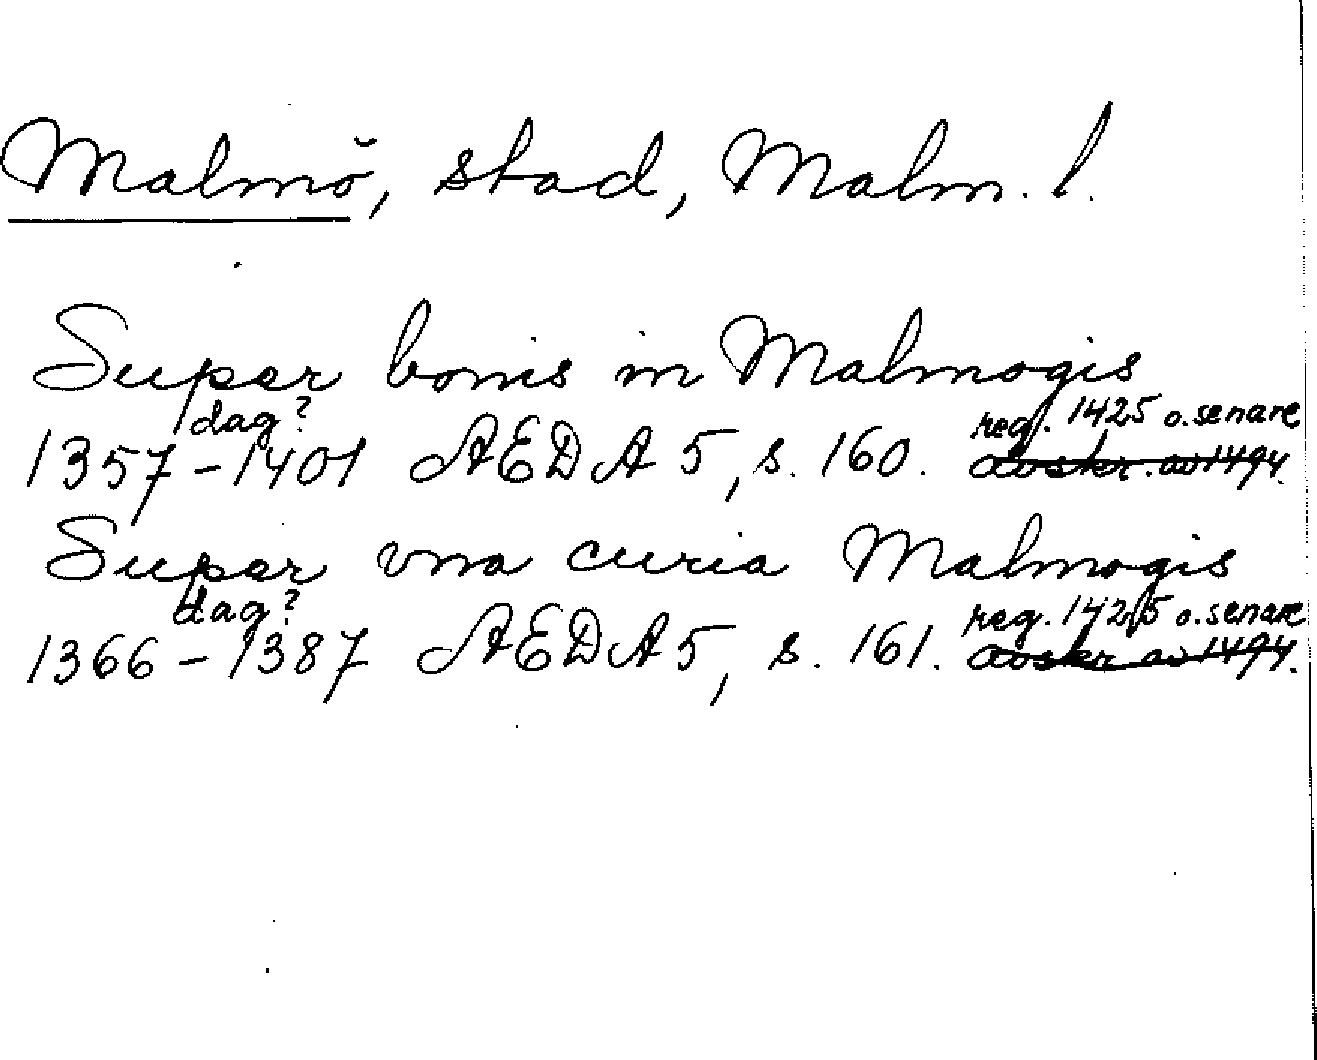 Malmö, stad, Malm. l.
Super bonis in Malmogis
dag? reg. 1425 o. senare
1357-1401 AEDA 5, s. 160. avskr. av 1494.
Super vna curia Malmogis
dag? reg. 1425 o. senare
1366-1387 AEDA 5, s. 161. avskr av 1494.